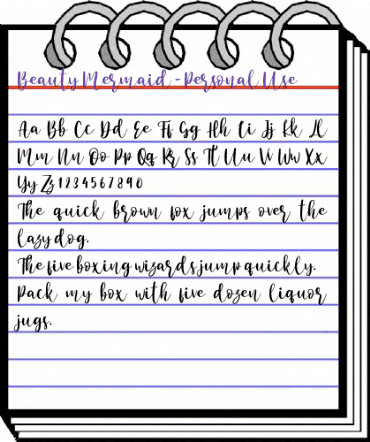 Beauty Mermaid - Personal Use
Aa Bb Cc Dd Ee Ff Gg Hh Ii Jj Kk Ll
Mm Nn Oo Pp Qq Rr Ss Tt Uu Vv Ww Xx
Yy Zz 1 2 3 4 5 6 7 8 9 0
The quick brown fox jumps over the
lazy dog.
The five boxing wizards jump quickly.
Pack my box with five dozen liquor
jugs.